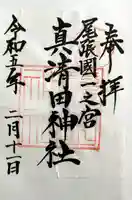 奉拝
尾張國一之宮
真清田神社
令和五年
二月十一日